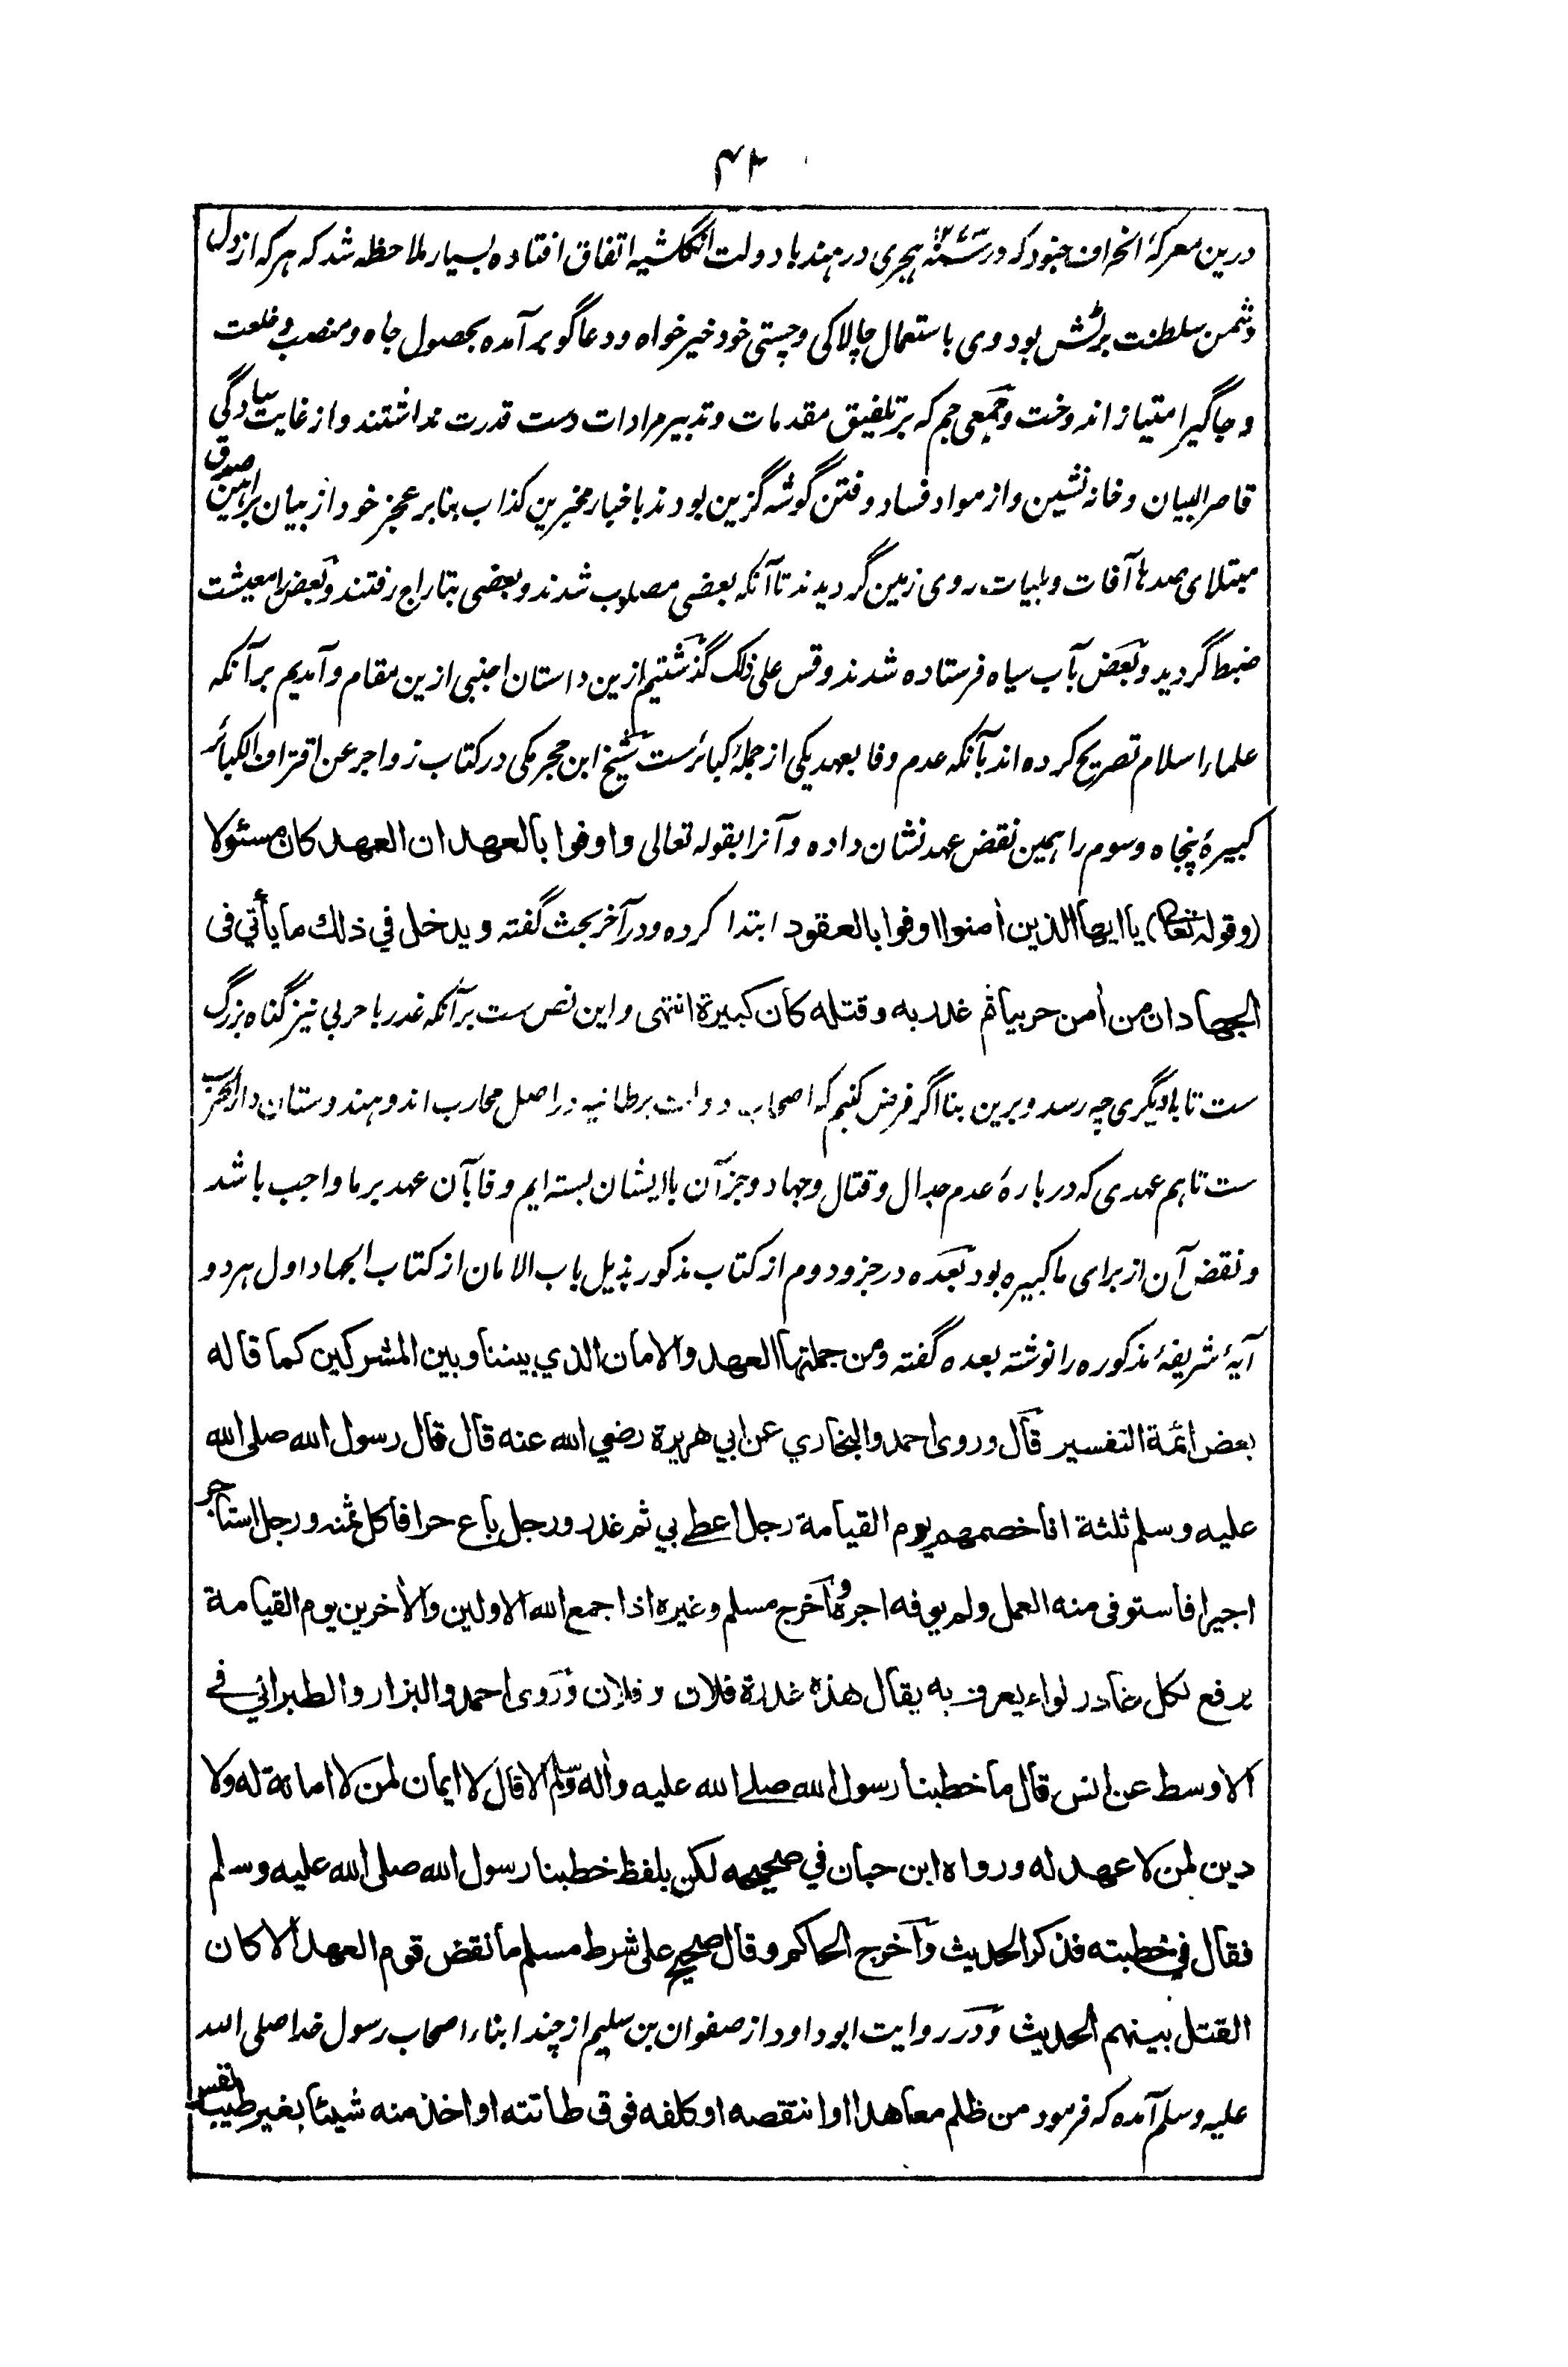 ۴۲
درین معرکۂ انحراف جنود که در سنه ۱۲۷۳ هجری در هند با دولت انگلشیه اتفاق افتاده بسیار ملاحظه شد که هر که از دل
دشمن سلطنت برٹش بود وی باستعمال چالاکی و چستی خود خیرخواه و دعاگو برآمده بحصول جاه و منصب و خلعت
و جاگیر امتیاز اندوخت و جمعی جم که بر تلفیق مقدمات و تدبیر مرادات دست قدرت نداشتند و از غایت سادگی
قاصر البیان و خانه نشین و از مواد فساد و فتن گوشه گزین بودند باخبار مخبرین کذاب بنابر عجز خود از بیان براهین صدق
مبتلای صدها آفات و بلیات روی زمین گردیدند تا آنکه بعضی مصلوب شدند و بعضی بتاراج رفتند و بعض را معیشت
ضبط گردید و بعض بآب سیاه فرستاده شدند و قس علی ذلک گذشتیم ازین داستان اجنبی ازین مقام و آمدیم برآنکه
علماء اسلام تصریح کرده اند بآنکه عدم وفا بعهد یکی از جملۂ کبائرست شیخ ابن حجر مکی در کتاب زواجر عن اقتراف الکبائر
کبیرۂ پنجاه و سوم را همین نقض عهد نشان داده و آنرا بقوله تعالی واوفوا بالعهد ان العهد كان مسئولا
(وقوله تعالى) يا ايها الذين أمنوا اوفوا بالعقود ابتدا کرده و در آخر بحث گفته ويدخل في ذلك ما يأتي في
الجهاد ان من أمن حربيا ثم غدر به وقتله كان كبيرة انتهى و این نص ست برآنکه غدر با حربی نیز گناه بزرگ
ست تا بادیگری چه رسد و برین بنا اگر فرض کنیم که اصحاب دولت برطانیه در اصل محارب اند و هندوستان دار الحرب
ست تا هم عهدی که دربارۂ عدم جدال و قتال و جهاد و جز آن با ایشان بسته ایم وفا بآن عهد بر ما واجب باشد
و نقض آن از برای ما کبیره بود بعده در جزو دوم از کتاب مذکور بذیل باب الامان از کتاب الجهاد اول هر دو
آیۂ شریفۂ مذکوره را نوشته بعده گفته ومن جملتها العهد والامان الذي بيننا وبين المشركين كما قاله
بعض ائمة التفسير قال وروى احمد والبخاري عن ابي هريرة رضي الله عنه قال قال رسول الله صلى الله
عليه وسلم ثلثة انا خصمهم يوم القيامة رجل اعطى بي ثم غدر ورجل باع حرا فأكل ثمنه ورجل استاجر
اجيرا فاستوفى منه العمل ولم يوفه اجره واخرج مسلم وغيره اذا جمع الله الاولين والأخرين يوم القيامة
يرفع لكل غادر لواء يعرف به يقال هذه غدرة فلان وفلان وروى احمد والبزار والطبراني في
الاوسط عن انس قال ما خطبنا رسول الله صلى الله عليه وأله وسلم الا قال لا ايمان لمن لا امانة له ولا
دين لمن لا عهد له ورواه ابن حبان في صحيحه لكن بلفظ خطبنا رسول الله صلى الله عليه وسلم
فقال في خطبته فذكر الحديث وأخرج الحاكم وقال صحيح على شرط مسلم ما نقض قوم العهد الا كان
القتل بينهم الحديث و در روایت ابو داود از صفوان بن سلیم از چند ابناء اصحاب رسول خدا صلی الله
علیه وسلم آمده که فرمود من ظلم معاهدا او انتقصه او كلفه فوق طاقته او اخذ منه شيئا بغير طيب نفس